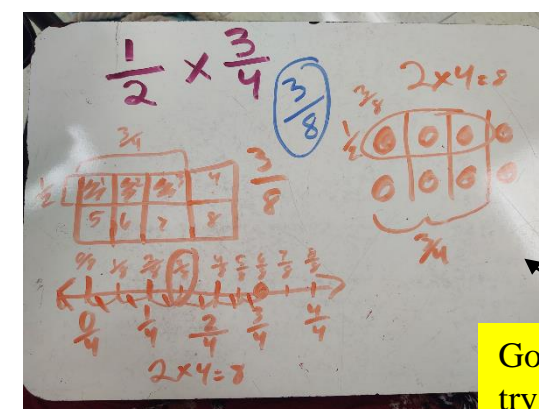 1/2 × 3/4
3/8
2×4=8
3/8
1/2
3/4
3/4
1/2
4
5 6 7 8
3/8
0/8 1/8 2/8 3/8 4/8 5/8 6/8 7/8 8/8
0/4 1/4 2/4 3/4 4/4
2×4=8
Go
try